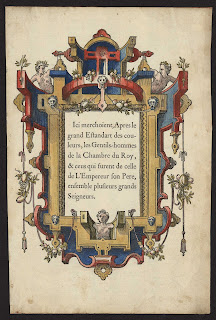 Ici merchoient, Apres le
grand Estandart des cou-
leurs, les Gentils-hommes
de la Chambre du Roy,
& ceus qui furent de celle
de L'Empereur son Pere,
ensemble plusieurs grands
Seigneurs.